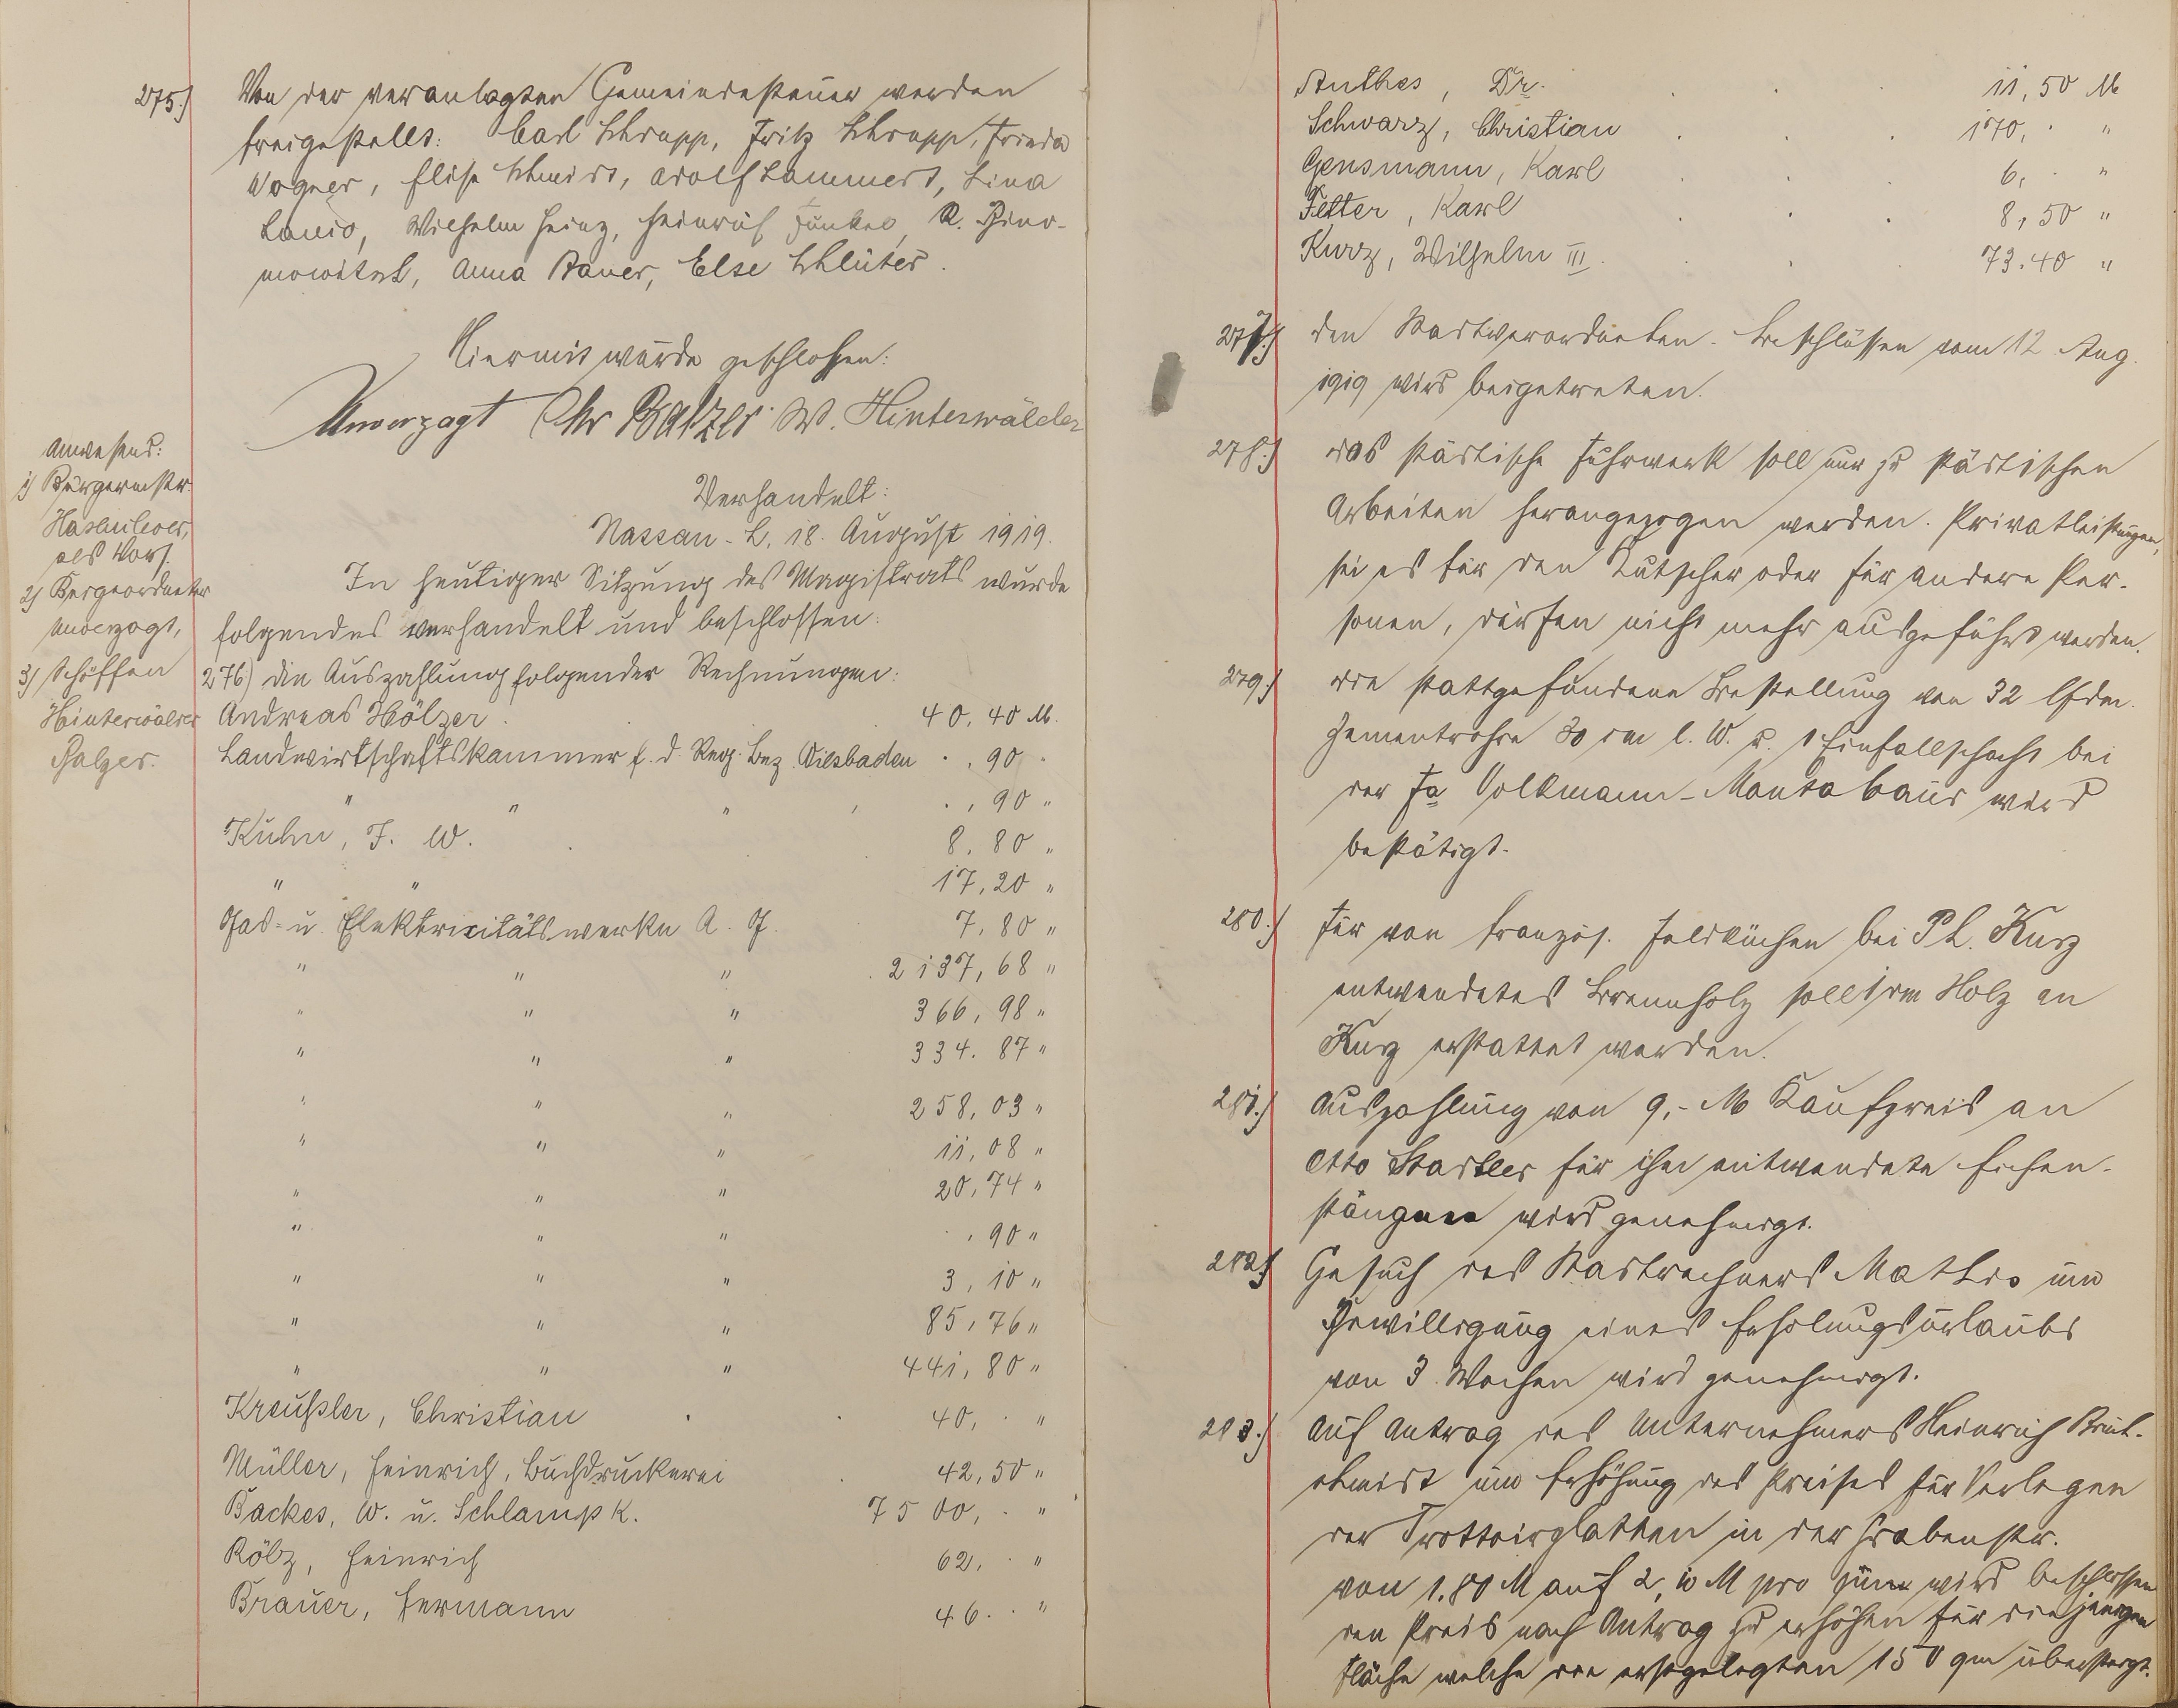 275.) Von der veranlagten Gemeindesteuer werden
freigestellt: Carl Schrupp, Fritz Schrupp, Frieda
Wagner, Elise Schmidt, Adolf Lammert, Lina
Wilhelm Heinz, Heinrich Funker, R.
Anna Bauer, Else Schlüter.
Hiermit wurde geschlossen:
Unverzagt Chr Balzer W. Hinterwälder
Anwesend:
1) Bürgermstr.
Hasenclever,
als Vors.
2) Beigeordneter
Unverzagt,
3) Schöffen
Hinterwälder
Balzer.
Verhandelt:
Nassau-L, 18. August 1919.
In heutiger Sitzung des Magistrats wurde
folgendes verhandelt und beschlossen:
276) die Auszahlung folgender Rechnungen:
Andreas Hölzer . 40,40 M.
Landwirtschaftskammer f. d. Reg. Bez. Wiesbaden . ,90 .
" " " , . ,90 "
Kuhn, J. W. 8,80 "
" " 17,20 "
Gas- u. Elektricitätswerke A. G. 7,80 "
" " " 2137,68 "
" " " 366,98 "
" " " 334.87 "
" " " 258,03 "
" " " 11,08 "
" " " 20,74 "
" " " . ,90 "
" " " 3,10 "
" " " 85,76 "
" " " 441,80 "
Kreußler, Christian . . 40, . "
Müller, Heinrich, Buchdruckerei . 42,50 "
Backes, W. u. Schlamp K. 7500, . "
Kölz, Heinrich 62, . "
Brauer, Hermann 46. . "
Anthes, Dr. . . . 11,50 M
Schwarz, Christian . . . 170, . "
Gensmann, Karl . . . 6, . "
Fetter, Karl . . . 8,50 "
Kurz, Wilhelm III. . . . 73.40 "
277.) den Stadtverordneten-Beschlüssen vom 12 Aug.
1919 wird beigetreten.
278.) das städtische Fuhrwerk soll nur zu städtischen
Arbeiten herangezogen werden. Privatleistungen,
sei es für den Kutscher oder für andere Per-
sonen, dürfen nicht mehr ausgeführt werden.
279.) die stattgefundene Bestellung von 32 lfdm.
Zementrohre 30 cm l. W. u. 1 Einfallschacht bei
der Fa Volkmann-Montabaur wird
bestätigt.
280.) Für von französ. Feldküchen bei Ph. Kurz
entwendetes Brennholz soll 1 rm Holz an
Kurz erstattet werden.
281.) Auszahlung von 9,- M Kaufpreis an
Otto für ihm entwendete Eichen-
stangen wird genehmigt.
282.) Gesuch des Stadtrechners um
Bewilligung eines Erholungsurlaubs
von 3 Wochen wird genehmigt.
283.) Auf Antrag des Unternehmers Heinrich
um Erhöhung des Preises für Verlegen
der Trottoirplatten in der Grabenstr.
von 1.80 M auf 2,10 M pro qm wird beschlossen
den Preis nach Antrag zu erhöhen für diejenigen
Fläche welche die erstgelegten 150 qm übersteigt.